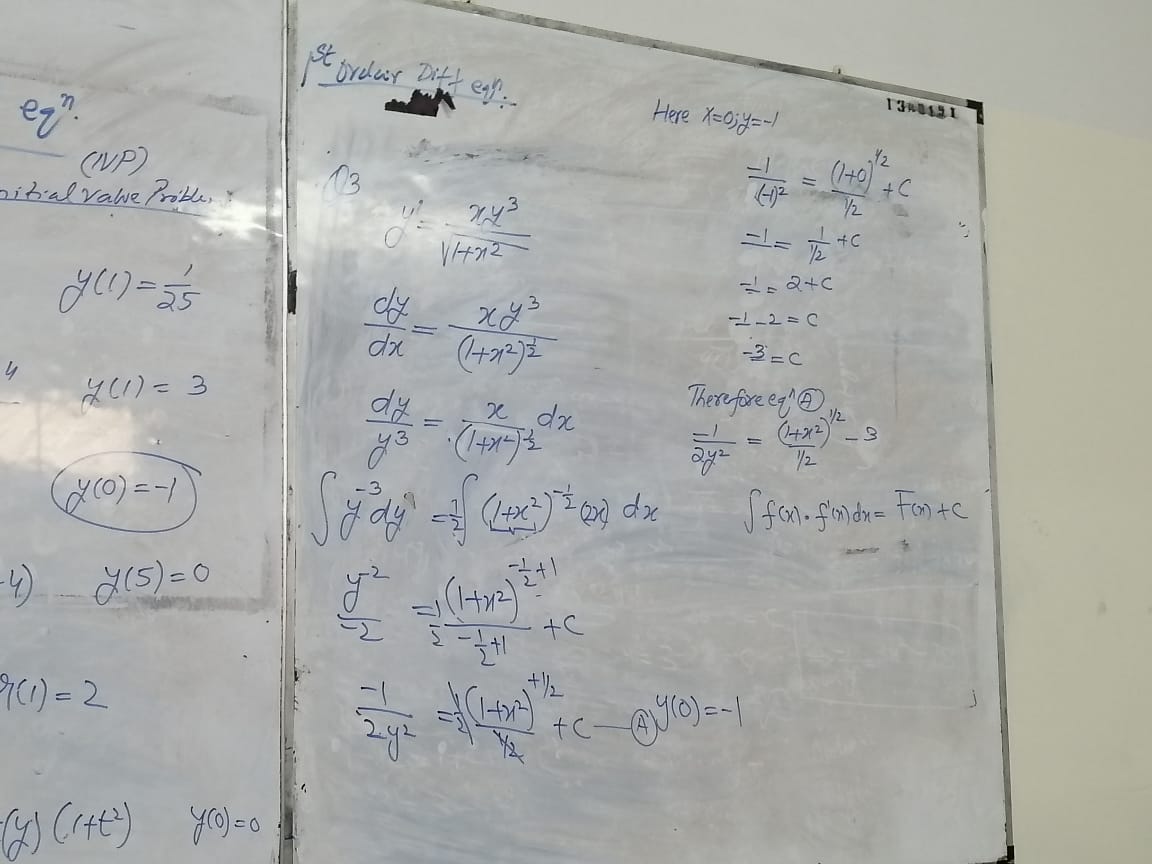 eqⁿ.
(NP)
nitial value Proble
y(1) = 1/25
4
y(1) = 3
y(0) = -1
-4) y(5) = 0
r(1) = 2
(y) (1+t²) y(0) = 0
1st order Diff eqⁿ.
Q3
y' = xy³/√1+x²
dy/dx = xy³/(1+x²)^½
dy/y³ = x/(1+x²)^½ dx
∫ y^-3 dy = 1/2 ∫ (1+x²)^-½ (2x) dx
y^-2/-2 = 1/2 (1+x²)^(-½+1)/(-½+1) + C
-1/2y² = 1/2 (1+x²)^(+1/2)/(1/2) + C — Ⓐ y(0) = -1
Here x=0; y=-1
13A0191
-1/(-1)² = (1+0)^1/2/(1/2) + C
-1 = 1/(1/2) + C
-1 = 2+C
-1-2 = C
-3 = C
Therefore eqⁿ Ⓐ
-1/2y² = (1+x²)^1/2/(1/2) - 3
∫ f(x) · f'(x) dx = F(x) + C